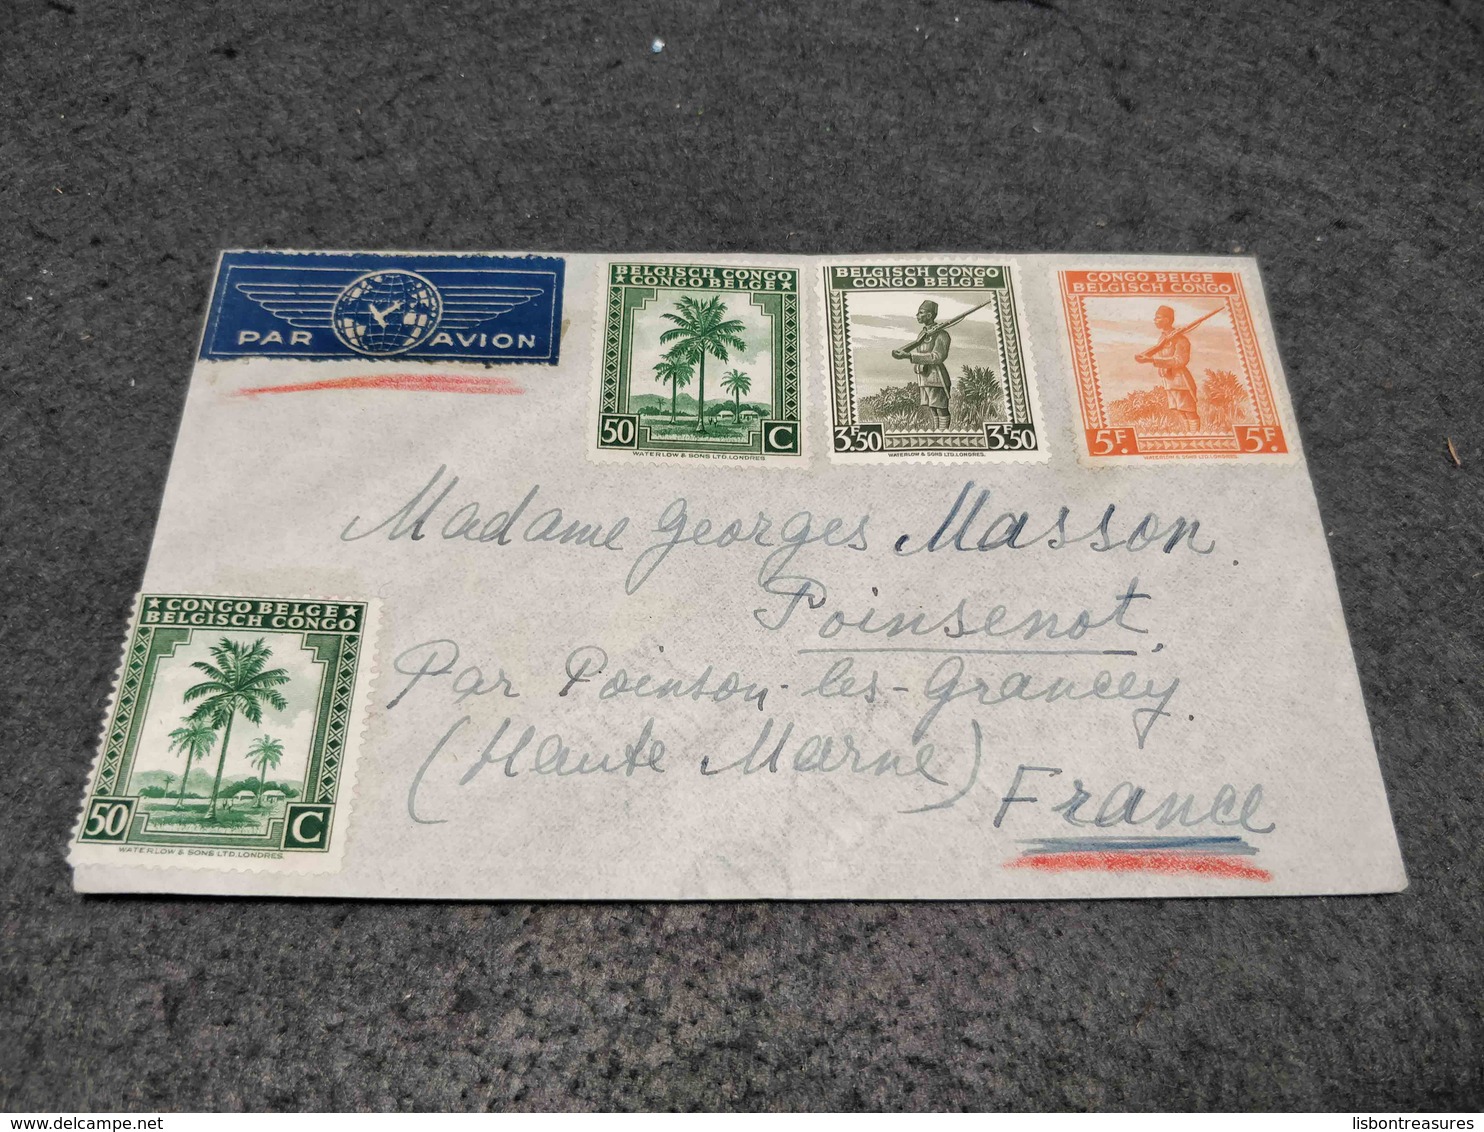 PAR AVION
BELGISCH CONGO
CONGO BELGE
50 C
WATERLOW & SONS LTD. LONDRES.
BELGISCH CONGO
CONGO BELGE
3F.50 3F.50
WATERLOW & SONS LTD. LONDRES.
CONGO BELGE
BELGISCH CONGO
5F. 5F.
WATERLOW & SONS LTD. LONDRES.
Madame Georges Masson.
Poinsenot.
Par Poinson-les-Grancey.
(Haute Marne) France
CONGO BELGE
BELGISCH CONGO
50 C
WATERLOW & SONS LTD. LONDRES.
www.delcampe.net
lisbontreasures